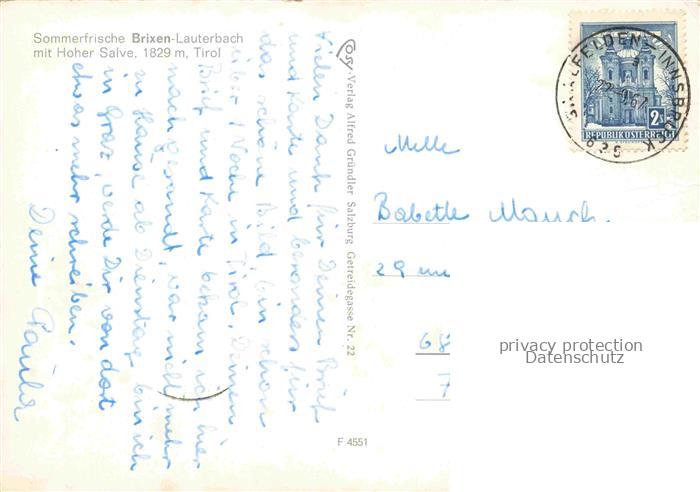 Sommerfrische Brixen-Lauterbach
mit Hoher Salve, 1829 m, Tirol
Vielen Dank für Deinen Brief
und Karte und besonders für
das schöne Bild, bin schon
über 1 Woche in Tirol, Deinen
Brief und Karte bekam ich hier
nach gesandt, war nicht mehr
zu Hause ab Dienstag bin ich
in Graz, werde Dir von dort
etwas mehr schreiben.
Deine Paula
Cosy-Verlag Alfred Gründler Salzburg Getreidegasse Nr. 22
F 4551
INNSBRUCK
22. 67
2
REPUBLIK ÖSTERREICH
Melle
Babette
29
68
privacy protection
Datenschutz